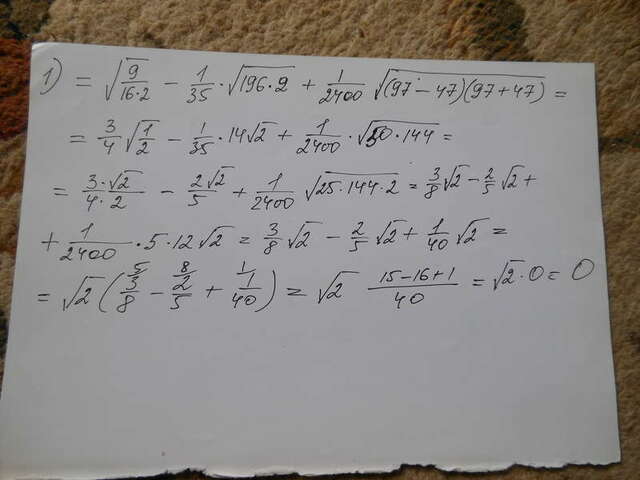 1) = √(9/(16·2)) − 1/35 · √(196·2) + 1/2400 √((97−47)(97+47)) =
= 3/4 √(1/2) − 1/35 · 14√2 + 1/2400 · √(50·144) =
= (3·√2)/(4·2) − (2√2)/5 + 1/2400 √(25·144·2) = 3/8 √2 − 2/5 √2 +
+ 1/2400 · 5·12√2 = 3/8 √2 − 2/5 √2 + 1/40 √2 =
5 8 1
= √2 (3/8 − 2/5 + 1/40) = √2 (15−16+1)/40 = √2·0 = 0